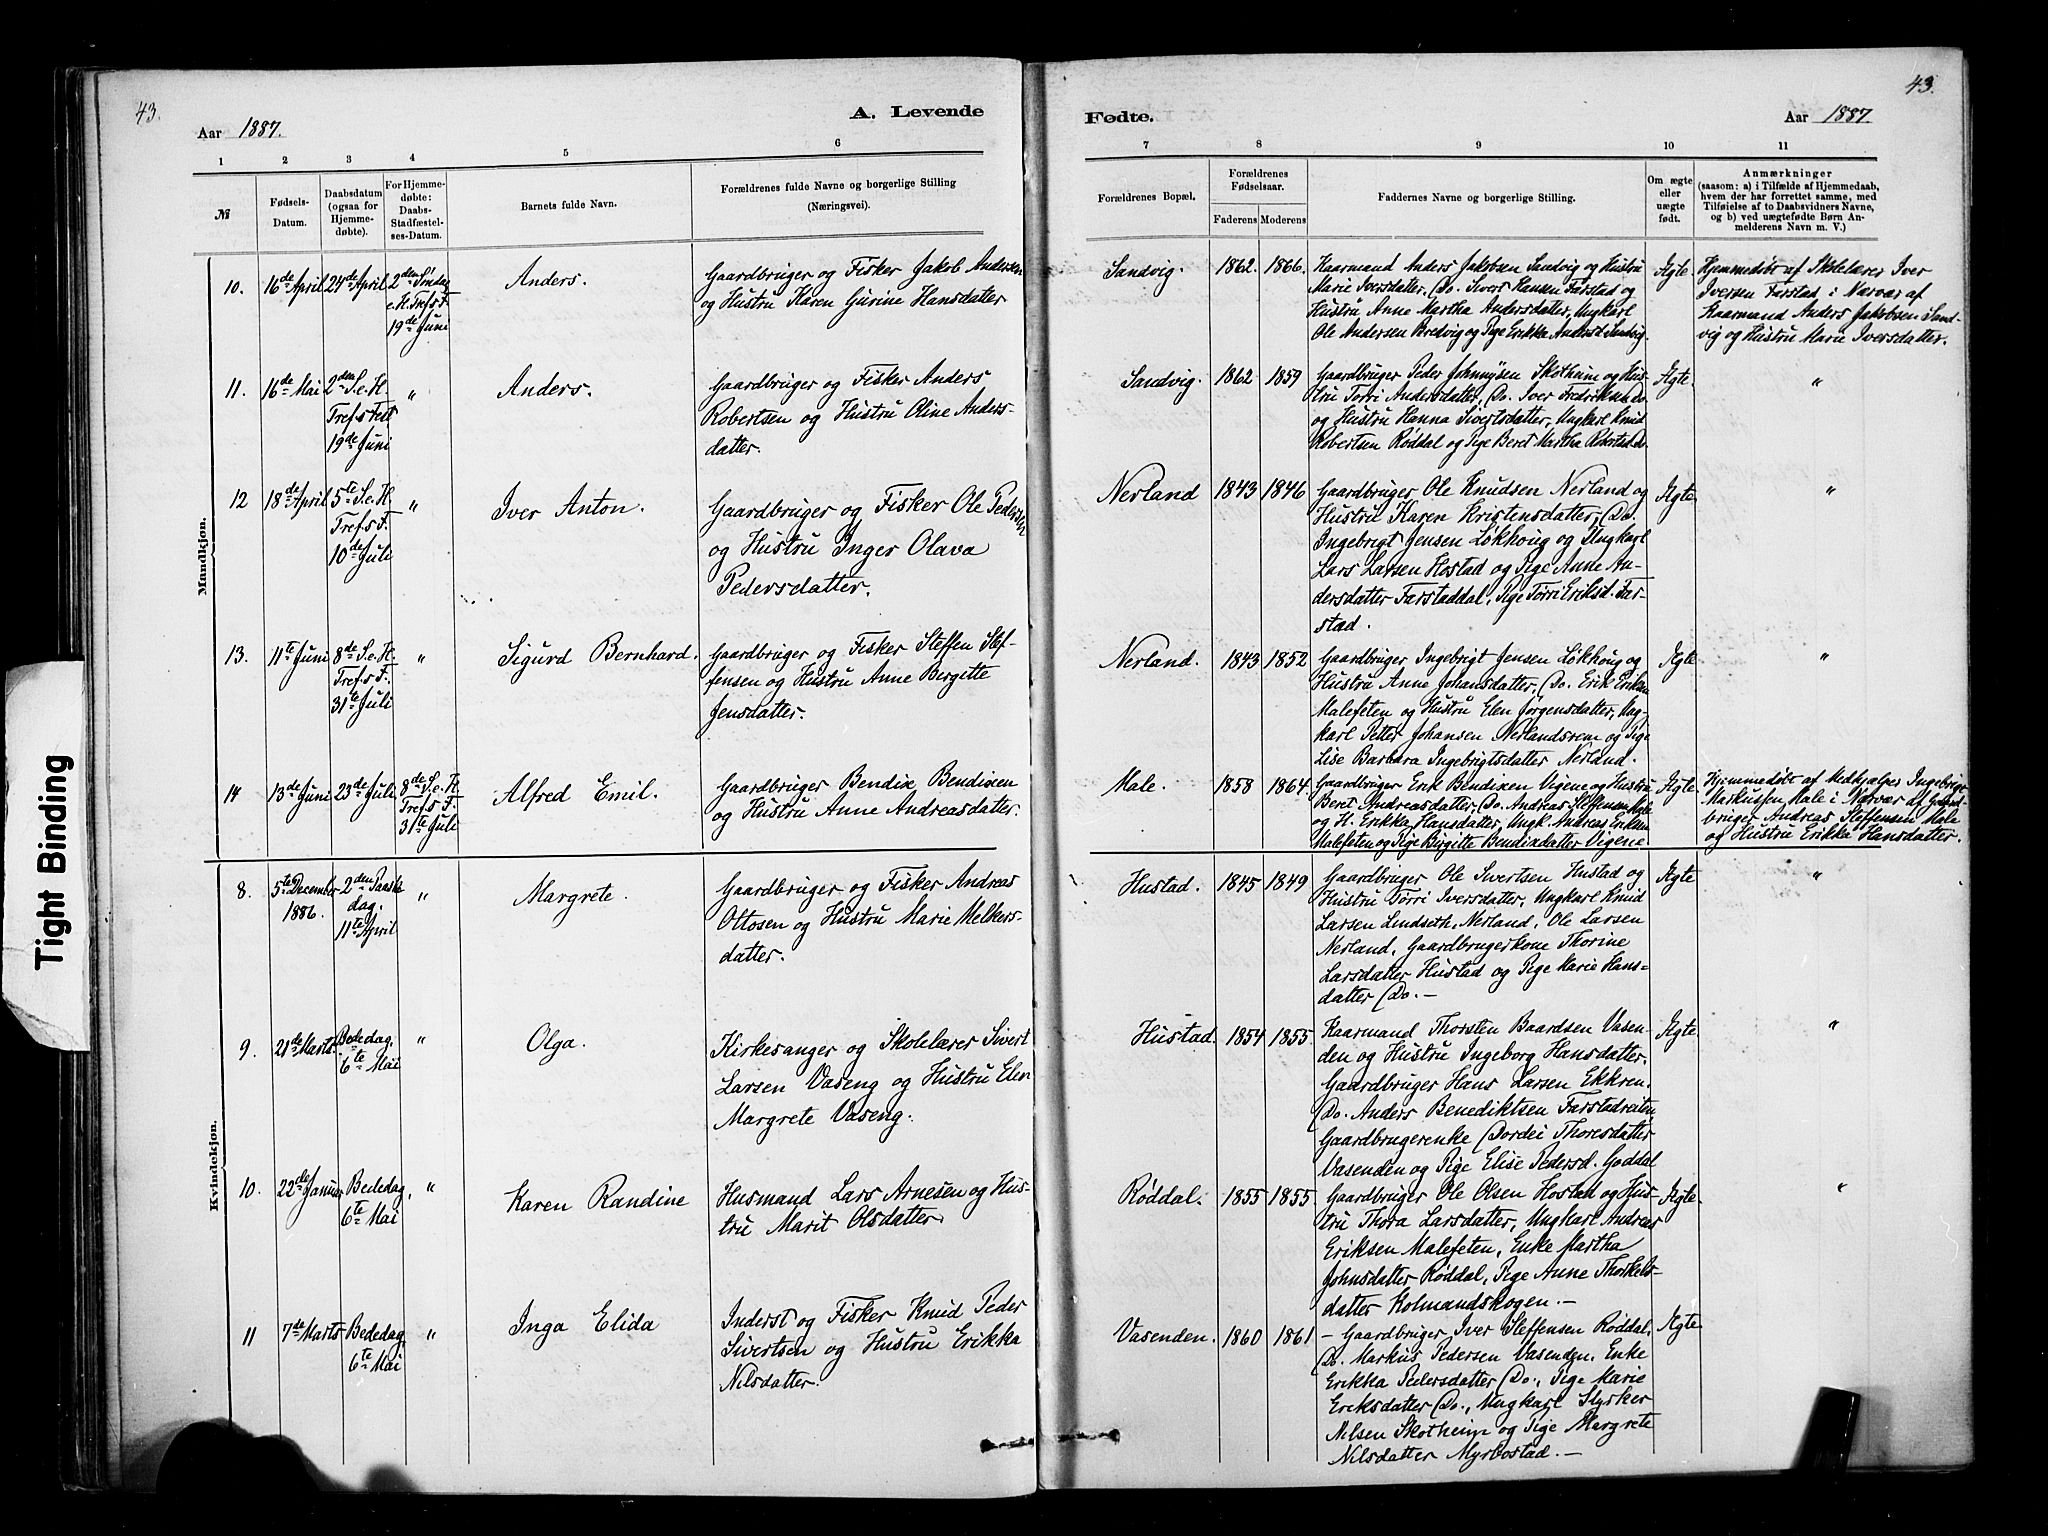 43.
Aar 1887.
A. Levende
1 2 3 4 5 6
№
Fødsels-
Datum.
Daabsdatum
(ogsaa for
Hjemme-
døbte).
For Hjemme-
døbte:
Daabs-
Stadfæstel-
ses-Datum.
Barnets fulde Navn.
Forældrenes fulde Navne og borgerlige Stilling
(Næringsvei).
Mandkjøn.
10. 16de April 24de April 2den Søndag
e.H.Tref.s F.
19de Juni
Anders.
Gaardbruger og Fisker Jakob Andersen
og Hustru Karen Gurine Hansdatter
11. 16de Mai 2den S.e.H.
Tref.s Fest
19de Juni
"
Anders.
Gaardbruger og Fisker Anders
Robertsen og Hustru Oline Anders-
datter.
12 18de April 5te S.e.H.
Tref.s F.
10de Juli
"
Iver Anton.
Gaardbruger og Fisker Ole Pedersen
og Hustru Inger Olava
Pedersdatter.
13. 11te Juni 8de S.e.H.
Tref.s F.
31te Juli
"
Sigurd Bernhard.
Gaardbruger og Fisker Steffen Stef-
fensen og Hustru Anne Birgitte
Jensdatter.
14 13de Juni 23de Juli 8de S.e.H.
Tref.s F.
31te Juli
Alfred Emil.
Gaardbruger Bendix Bendixen
og Hustru Anne Andreasdatter.
Kvindekjøn.
8. 5te December
1886.
2den Paaske
dag.
11te April
"
Margrete.
Gaardbruger og Fisker Andreas
Ottosen og Hustru Marie Melkers-
datter.
9. 21de Marts Bededag,
6te Mai
"
Olga.
Kirkesanger og Skolelærer Sivert
Larsen Vaseng og Hustru Elen
Margrete Vaseng.
10. 22de Januar Bededag,
6te Mai
"
Karen Randine
Husmand Lars Arnesen og Hus-
tru Marit Olsdatter
11 7de Marts Bededag,
6te Mai
"
Inga Elida
Inderst og Fisker Knud Peder
Sivertsen og Hustru Erikka
Nilsdatter.
Tight Binding
43.
Fødte.
Aar 1887.
7 8 9 10 11
Forældrenes Bopæl.
Forældrenes
Fødselsaar.
Faderens Moderens
Faddernes Navne og borgerlige Stilling.
Om ægte
eller
uægte
født.
Anmærkninger
(saasom: a) i Tilfælde af Hjemmedaab,
hvem der har forrettet samme, med
Tilføielse af to Daabsvidners Navne,
og b) ved uægtefødte Børn An-
melderens Navn m. V.)
Sandvig. 1862. 1866.
Kaarmand Anders Jakobsen Sandvig og Hustru
Marie Iversdatter, Do. Sivert Hansen Farstad og
Hustru Anne Martha Andersdatter, Ungkarl
Ole Andersen Bredvig og Pige Erikka Andersd. Sandvig.
Ægte
Hjemmedøbt af Skolelærer Iver
Iversen Farstad i Nærvær af
Kaarmand Anders Jakobsen Sand-
vig og Hustru Marie Iversdatter.
Sandvig. 1862 1859
Gaardbruger Peder Johnnysen Skotheim og Hus-
tru Torri Andersdatter, Do. Iver Fredriksen Do
og Hustru Hanna Sivertsdatter, Ungkarl Knud
Robertsen Røddal og Pige Beret Martha Robertsd. Do.
Ægte.
"
Nerland 1843 1846
Gaardbruger Ole Knudsen Nerland og
Hustru Karen Kristensdatter, Do.
Ingebrigt Jensen Løkhoug og Ungkarl
Lars Larsen Hostad og Pige Anne An-
dersdatter Farstaddal, Pige Torri Eriksd. Far-
stad.
Ægte
"
Nerland. 1843 1852
Gaardbruger Ingebrigt Jensen Løkhoug og
Hustru Anne Johansdatter, Do. Erik Eriksen
Malefeten og Hustru Elen Jørgensdatter, Ung-
karl Petter Johansen Nerlandsrem og Pige
Lise Barbara Ingebrigtsdatter Nerland.
Ægte
"
Male. 1858 1864
Gaardbruger Erik Bendixen Vigene og Hustru
Beret Andreasdatter, Do. Andreas Steffensen Male
og H. Erikka Hansdatter, Ungk. Andreas Eriksen
Malefeten og Pige Birgitte Bendixdatter Vigene
Ægte
Hjemmedøbt af Medhjælper Ingebrigt
Markussen Male i Nærvær af Gaard-
bruger Andreas Steffensen Male
og Hustru Erikke Hansdatter.
Hustad. 1845 1849
Gaardbruger Ole Sivertsen Hustad og
Hustru Torri Iversdatter, Ungkarl Knud
Larsen Lindseth, Nerland, Ole Larsen
Nerland, Gaardbrugerkone Thorine
Larsdatter Hustad og Pige Marie Hans-
datter Do. –
Ægte
"
Hustad. 1854 1855
Kaarmand Thorsten Baardsen Vasen-
den og Hustru Ingeborg Hansdatter,
Gaardbruger Hans Larsen Ekkren,
Do. Anders Benediktsen Farstadreiten,
Gaardbrugerenke Dordei Thoresdatter
Vasenden og Pige Elise Pedersd. Goddal
Ægte.
"
Røddal. 1855 1855.
Gaardbruger Ole Olsen Hostad og Hus-
tru Thora Larsdatter, Ungkarl Andreas
Eriksen Malefeten, Enke Martha
Johnsdatter Røddal, Pige Anne Thorkels-
datter Kolmandskogen. –
Ægte.
"
Vasenden. 1860 1861
– Gaardbruger Iver Steffensen Røddal,
Do. Markus Pedersen Vasenden, Enke
Erikka Pedersdatter Do., Pige Marie
Eriksdatter Do., Ungkarl Styrker
Nilsen Skotheim og Pige Margrete
Nilsdatter Myrbostad. –
Ægte